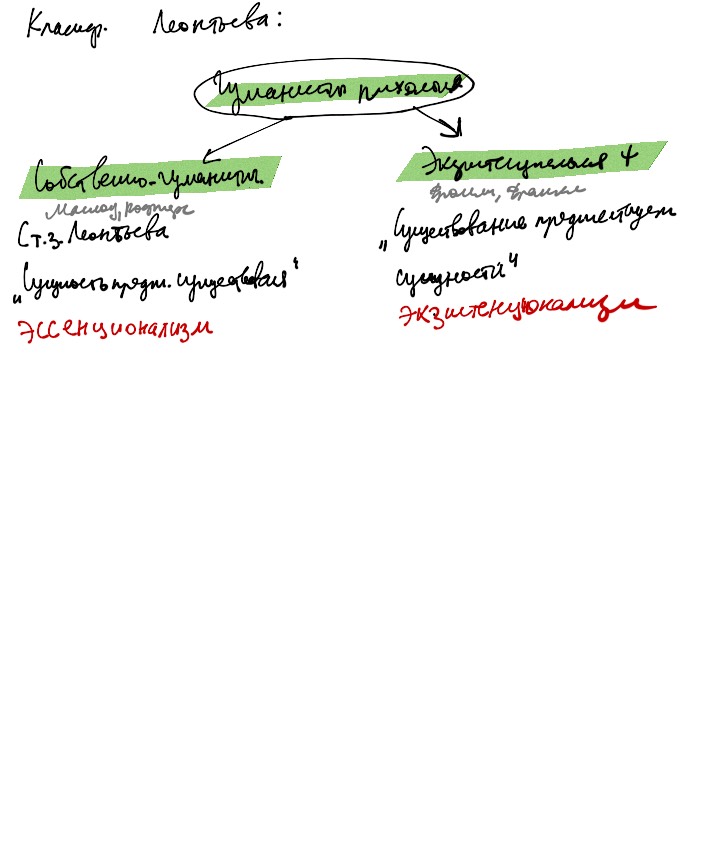 Классиф. Леонтьева:
Гуманистич психология
Собственно-гуманистич.
Маслоу, Роджерс
С т.з. Леонтьева
„Сущность предш. существования"
эссенционализм
Экзистенциальная ψ
Фромм, Франкл
„Существование предшествует
сущности"
экзистенционализм